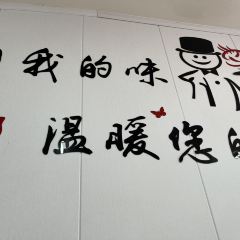 我的味
温暖您的